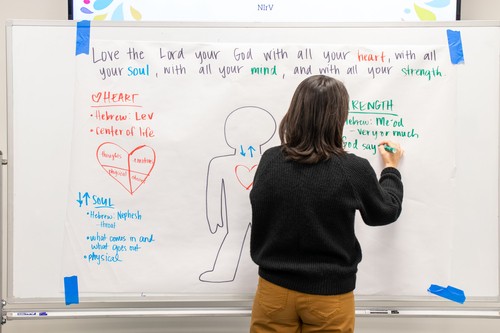 NIrV
Love the Lord your God with all your heart, with all
your soul, with all your mind, and with all your strength.
HEART
• Hebrew: Lev
• center of life
thoughts
emotions
physical
↓↑ SOUL
• Hebrew: Nephesh
- throat
• what comes in and
what goes out
• physical
RENGTH
Hebrew: Me'od
- very or much
God say